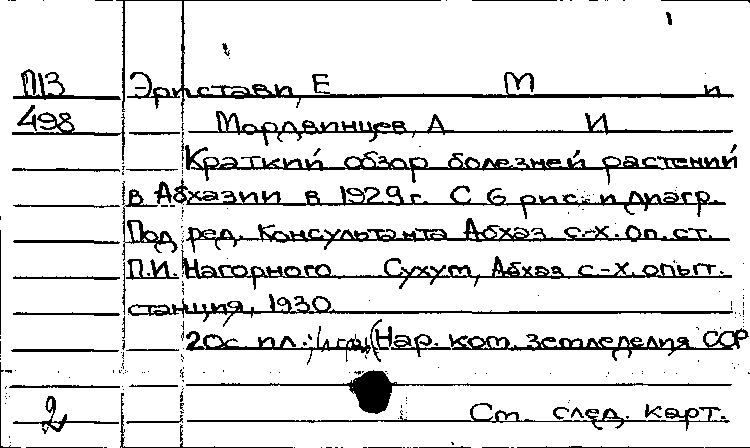 П13 Эристави, Е М и
498 Мордвинцев, А И
Краткий обзор болезней растений
в Абхазии в 1929 г. С 6 рис. и диагр.
Под ред. Консультанта Абхаз с-х. оп. ст.
П.И. Нагорного Сухум, Абхаз с-х. опыт.
станция, 1930
20с пл.; (Нар. ком. земледелия ССР
2 См. след. карт.